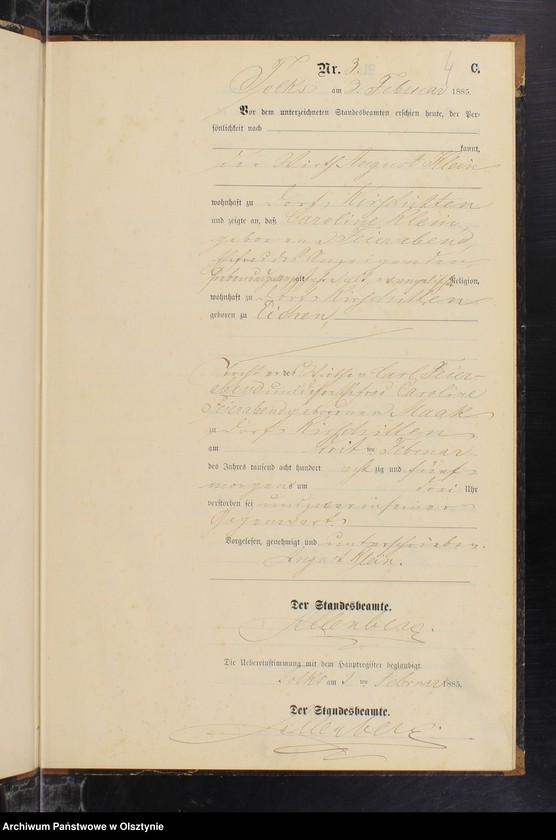 Nr. 3. C.
Tolks am 3. Februar 1885.
Vor dem unterzeichneten Standesbeamten erschien heute, der Per-
sönlichkeit nach
kannt,
der Wirth August Klein
wohnhaft zu Dorf Kirschitten
und zeigte an, daß Caroline Klein,
geborene Feierabend,
Ehefrau des Anzeigenden
alt, evangelischer Religion,
wohnhaft zu Dorf Kirschitten
geboren zu Eichen,
Tochter des Wirthen Carl Feier-
abend und dessen Ehefrau Caroline
Feierabend geborenen Maak
zu Dorf Kirschitten
am Februar
des Jahres tausend acht hundert achtzig und fünf
morgens um drei Uhr
verstorben sei und zwar in seiner
Gegenwart.
Vorgelesen, genehmigt und unterschrieben.
August Klein.
Der Standesbeamte.
Die Uebereinstimmung mit dem Hauptregister beglaubigt.
Tolks am 3. ten Februar 1885.
Der Standesbeamte.
Archiwum Państwowe w Olsztynie